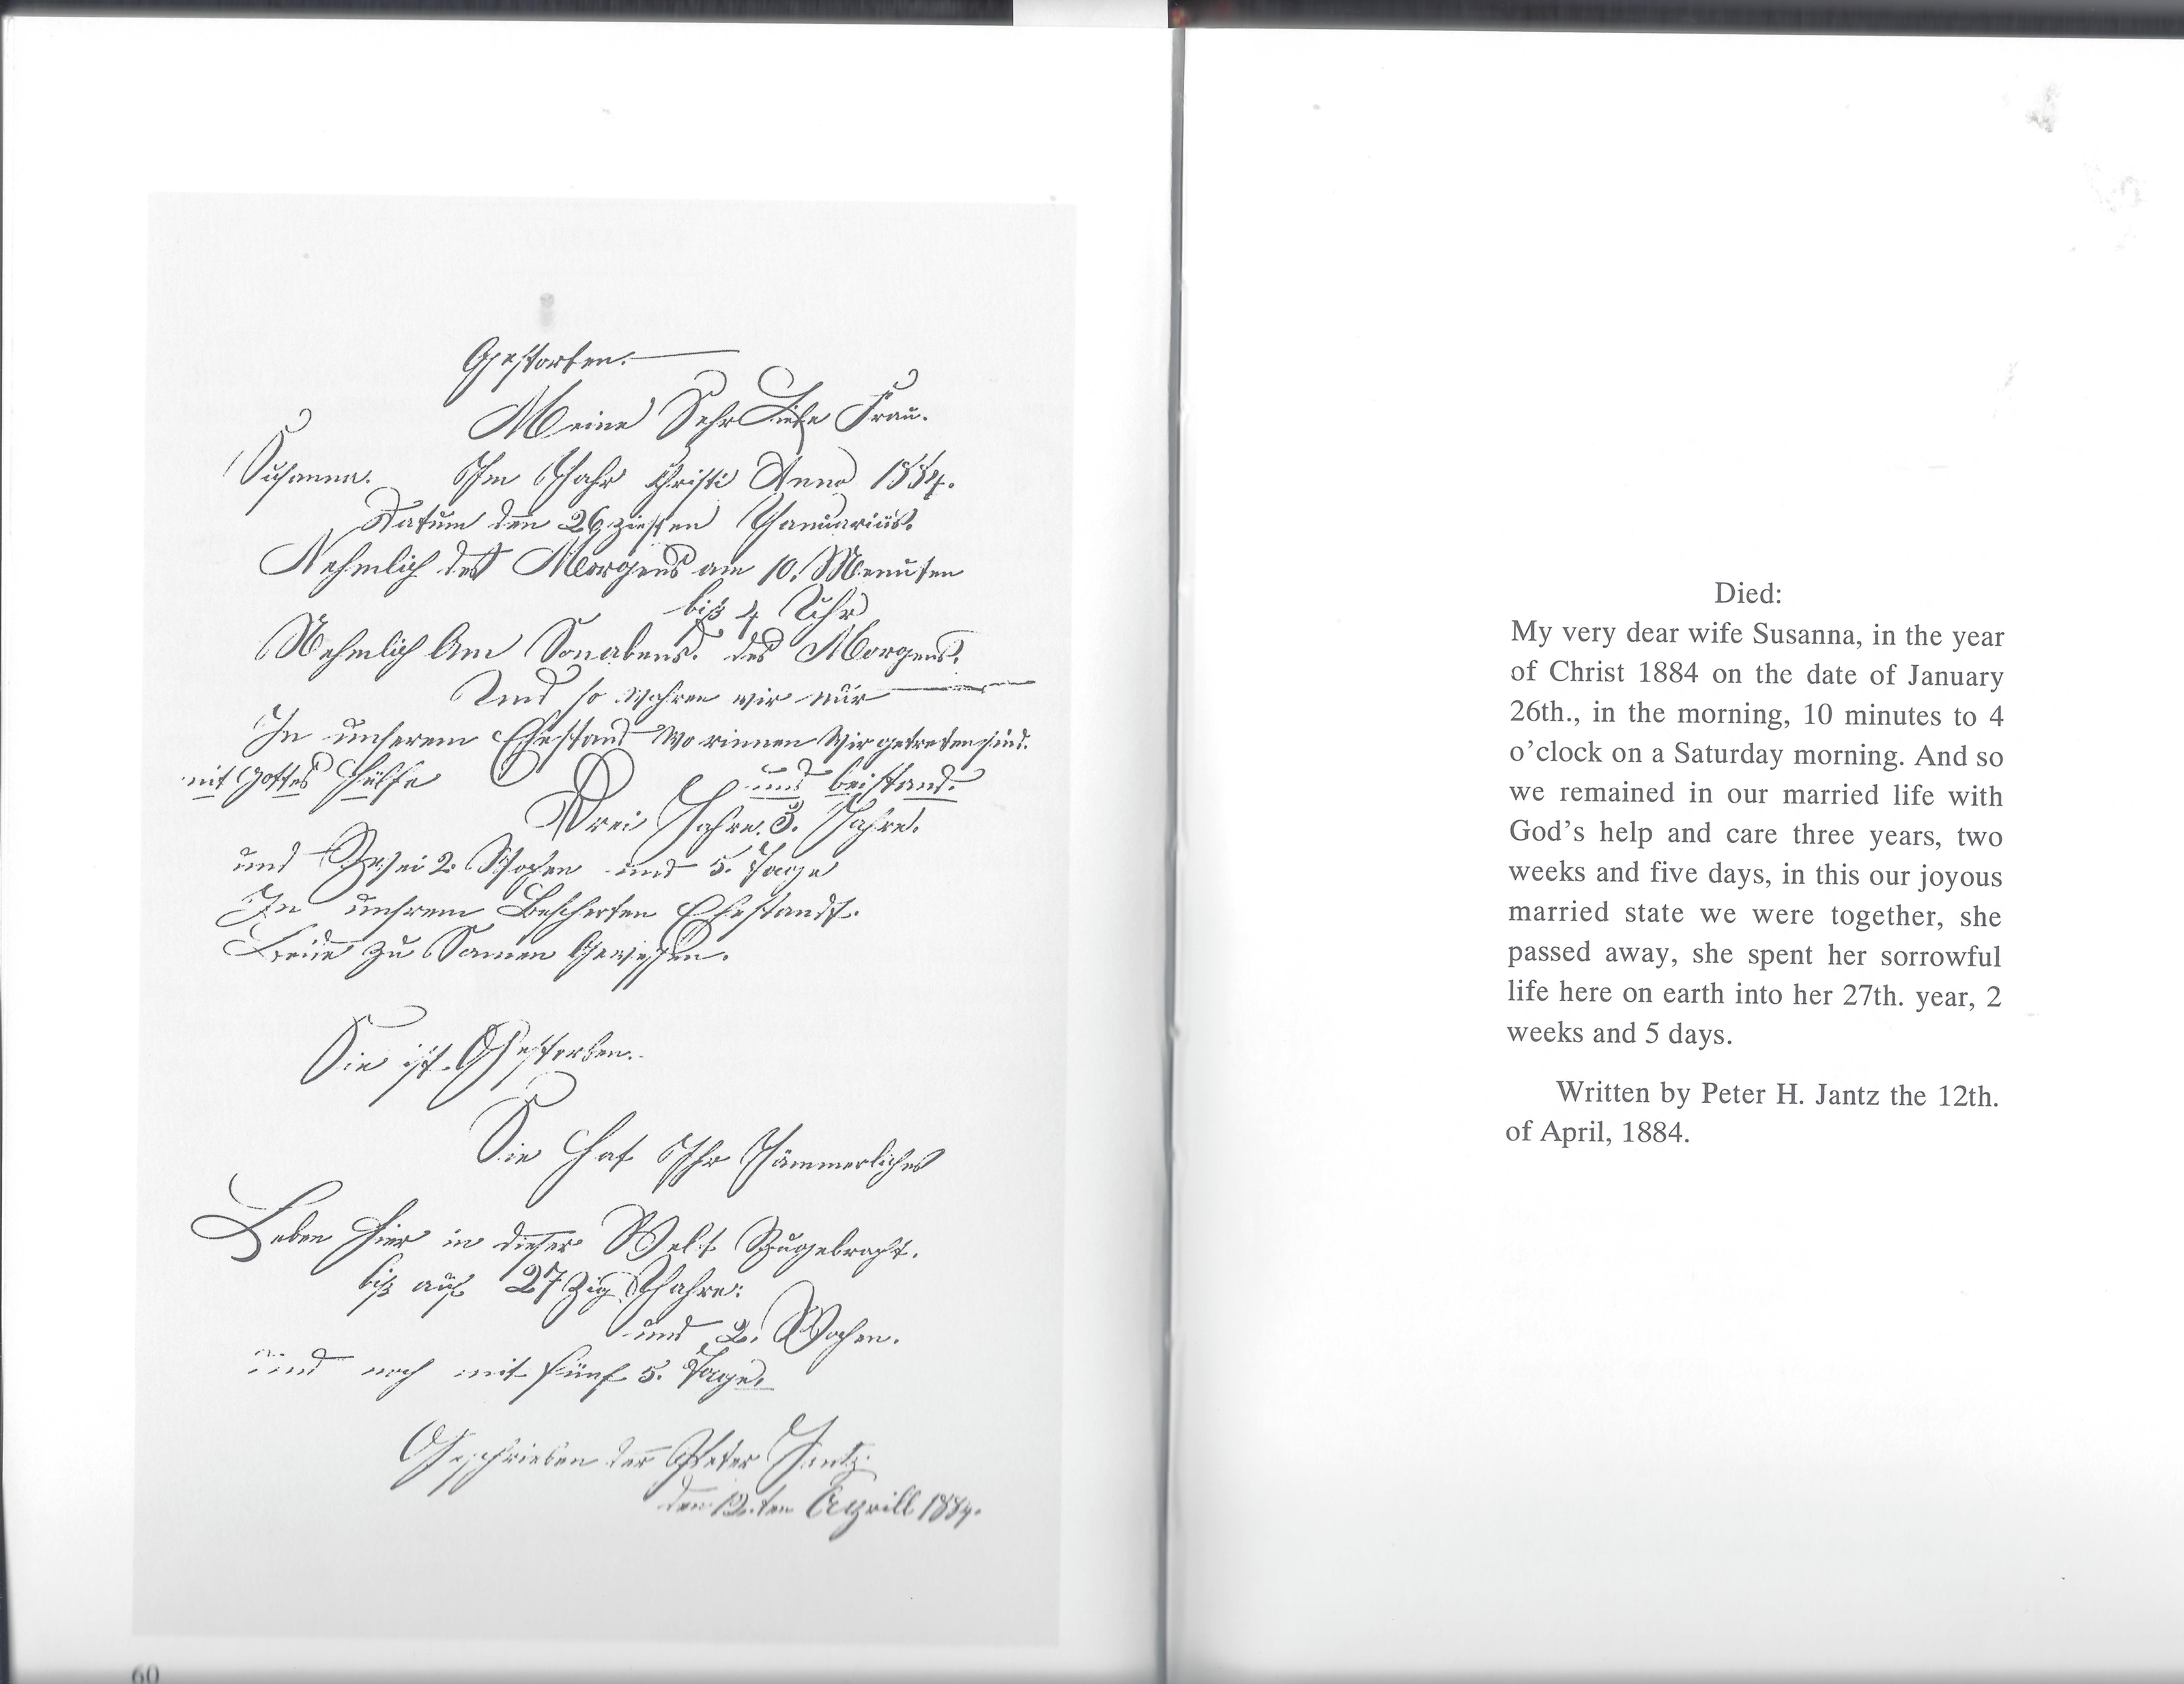 Gestorben.
Meine Sehr Liebe Frau.
Susanna. Im Jahr Christi Anno 1884.
Datum den 26ziesten Januarius.
Nehmlich des Morgens am 10. Menuten
biß 4 Uhr
Nehmlich Am Sonabend. des Morgens.
Und so wahren wir nur
In unserem Ehestand worinnen Wir getreten sind.
mit Gottes Hülfe und beistand.
Drei Jahre. 3. Jahre.
und Zwei 2. Wochen und 5. Tage
In unsrem Bescherten Ehestandt.
Freüde zu Samen Gewessen.
Sie ist Gestorben.
Sie hat Ihr Jämmerliches
Leben hier in dieser Welt Zugebracht.
biß auf 27zig Jahre:
und 2. Wochen.
und noch mit fünf 5. Tage.
Geschrieben der Peter Jantz.
den 12.ten Aprill 1884.
60
Died:
My very dear wife Susanna, in the year
of Christ 1884 on the date of January
26th., in the morning, 10 minutes to 4
o'clock on a Saturday morning. And so
we remained in our married life with
God's help and care three years, two
weeks and five days, in this our joyous
married state we were together, she
passed away, she spent her sorrowful
life here on earth into her 27th. year, 2
weeks and 5 days.
Written by Peter H. Jantz the 12th.
of April, 1884.